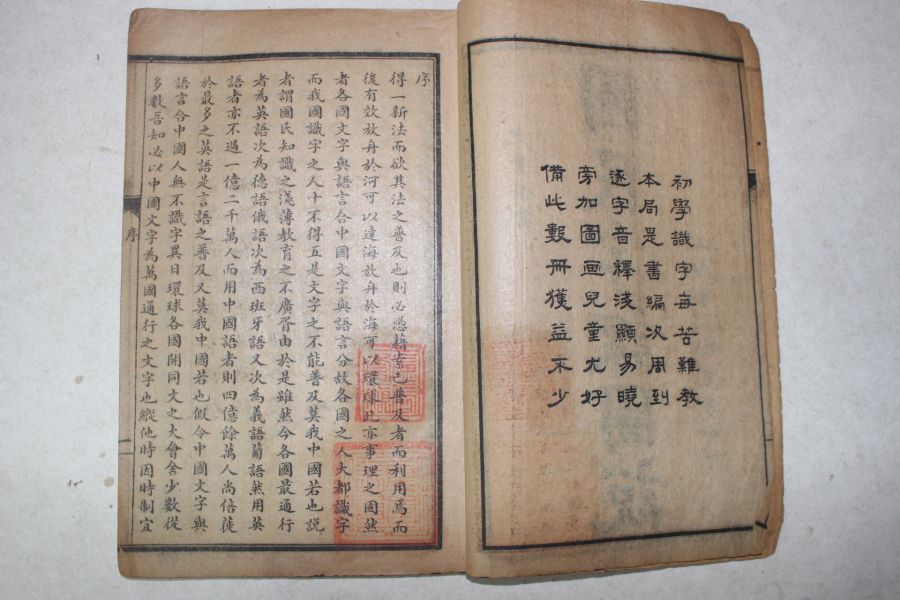 初學識字每苦難教
本局是書編次周到
逐字音釋淺顯易曉
旁加圖畫兒童尤好
備此數冊獲益不少
序
得一新法而欲其法之普及也則必憑藉素已普及者而利用焉而
後有效放舟於河可以達海放舟於海可以環球此亦事理之固然
者各國文字與語言合中國文字與語言分故各國之人大都識字
而我國識字之人十不得五是文字之不能普及莫我中國若也說
者謂國民知識之淺薄教育之不廣胥由於是雖然今各國最通行
者為英語次為德語俄語次為西班牙語又次為義語葡語然用英
語者亦不過一億二千萬人而用中國語者則四億餘萬人尚倍蓰
於最多之英語是言語之普及又莫我中國若也假令中國文字與
語言合中國人無不識字異日環球各國開同文之大會舍少數從
多數吾知必以中國文字為萬國通行之文字也縱他時因時制宜
序